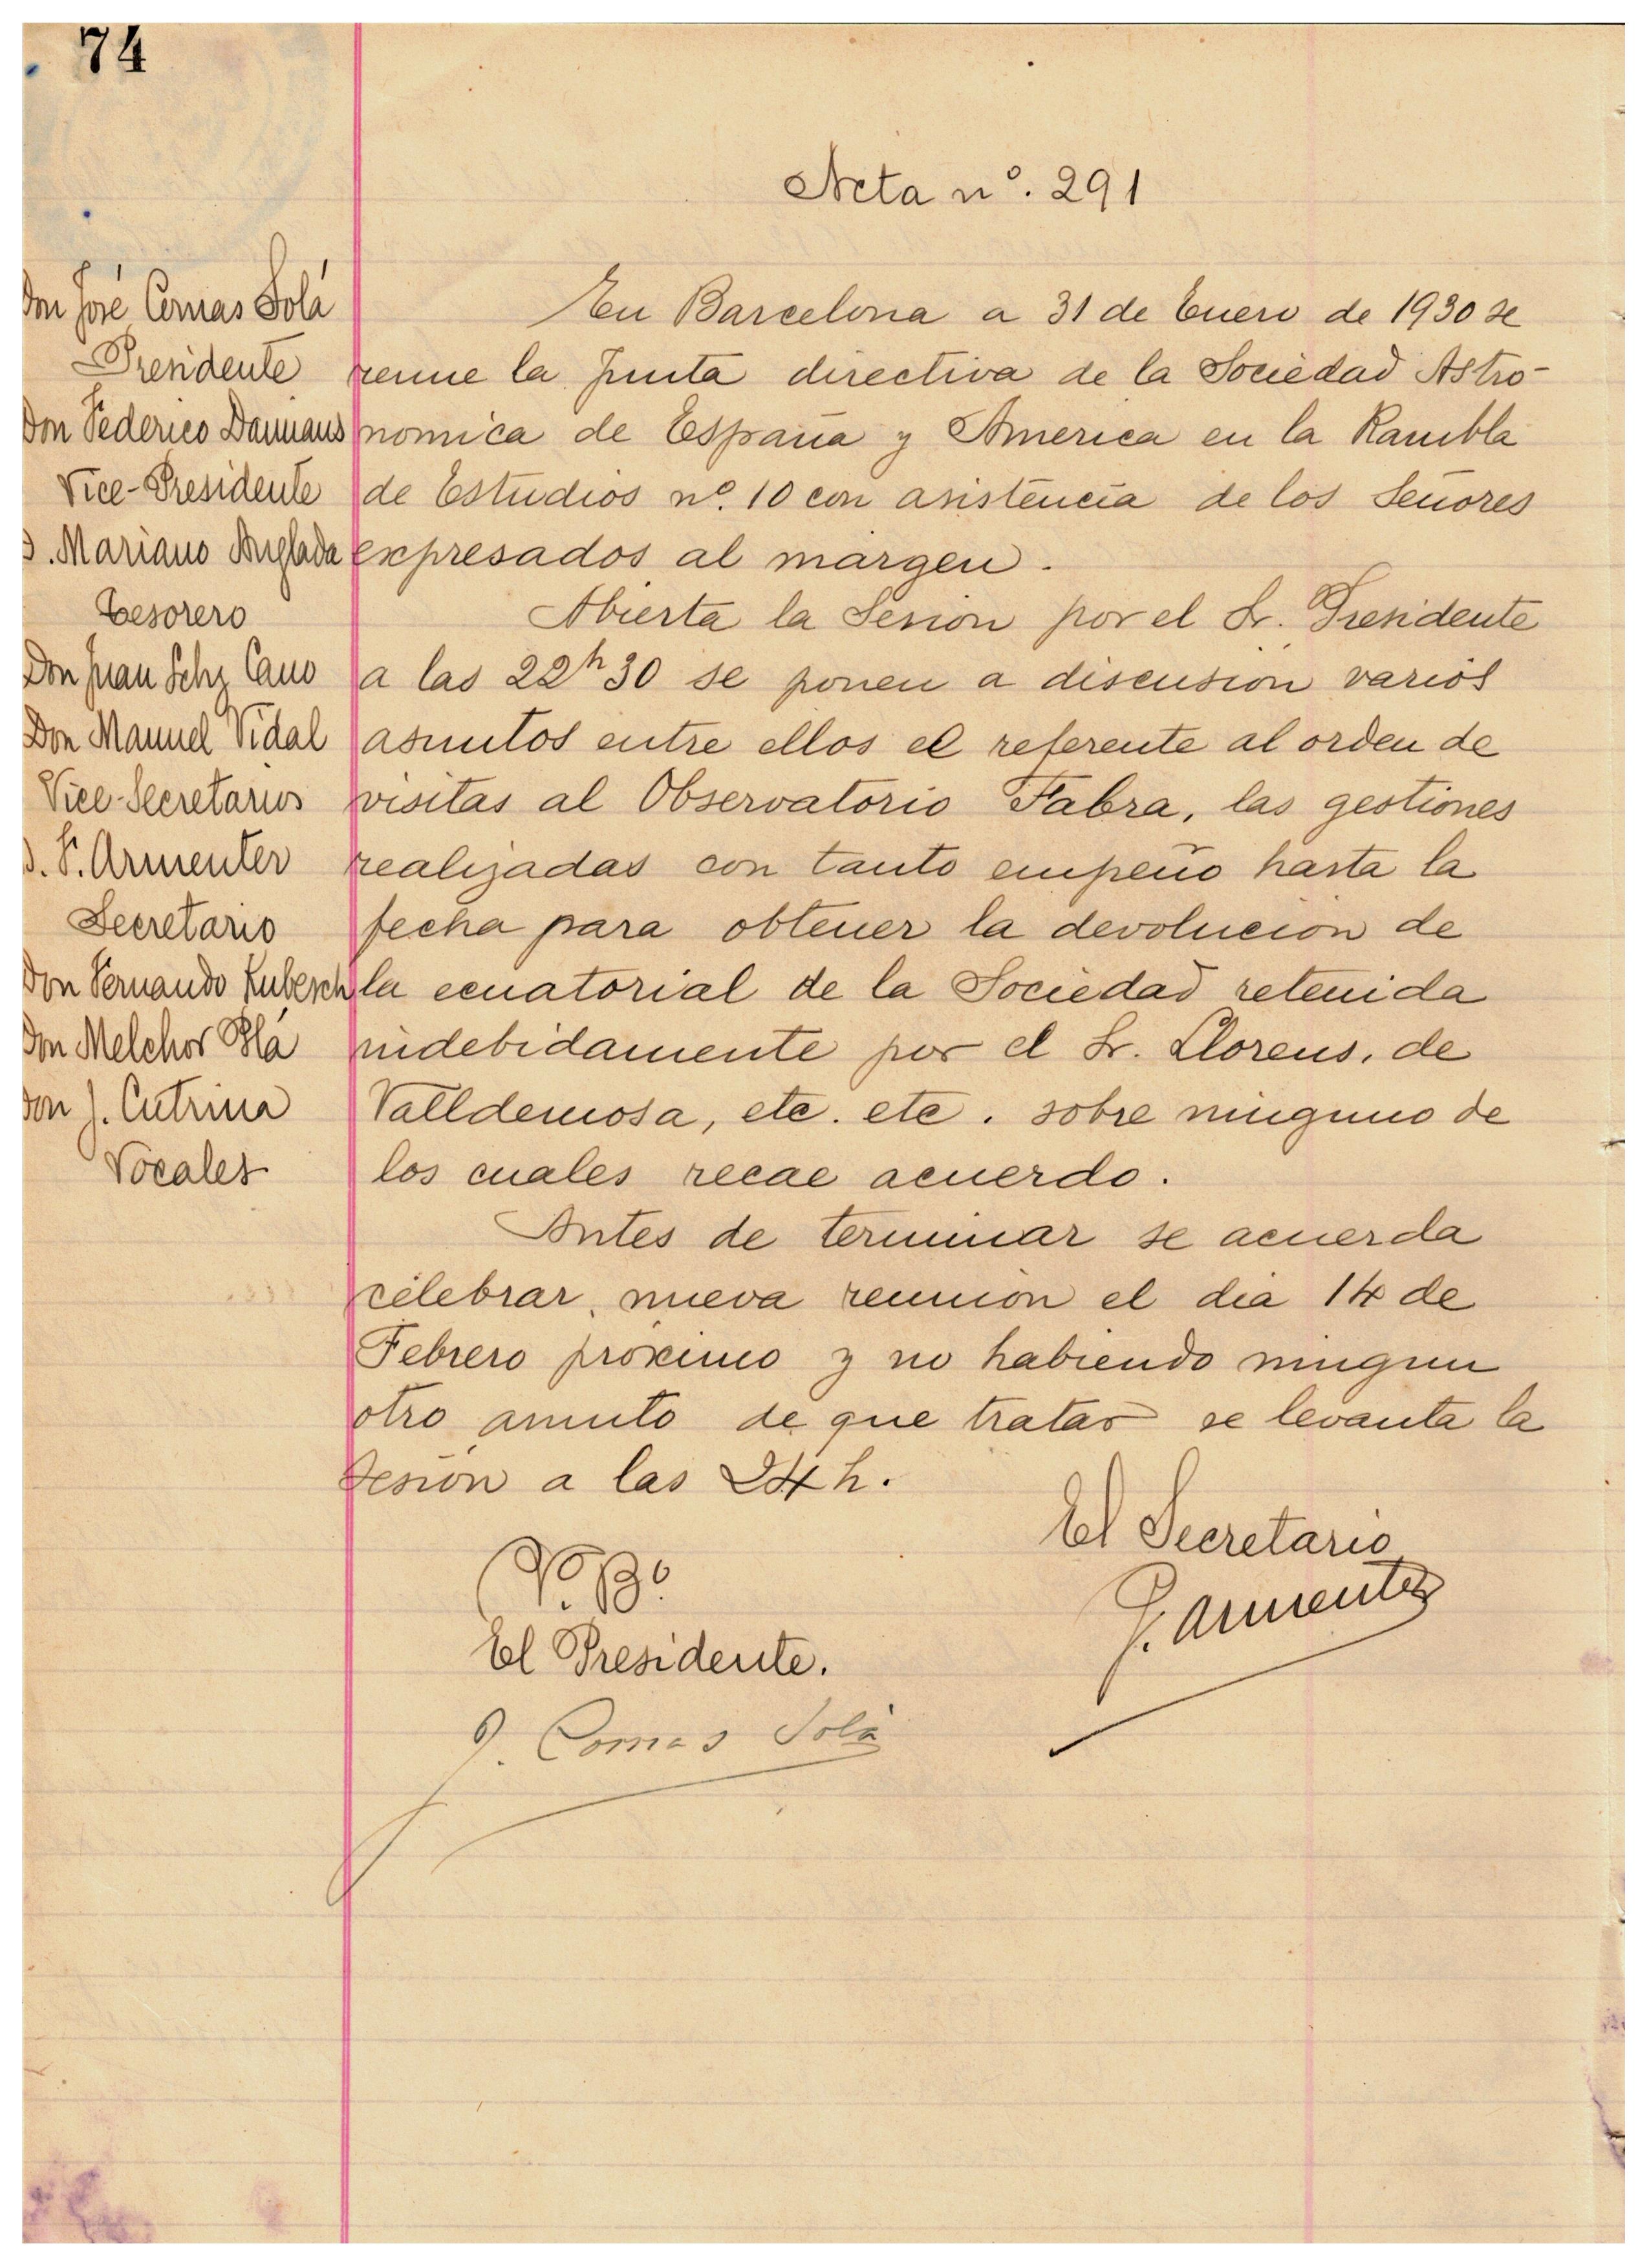 74
Acta nº. 291
Don José Comas Solá
Presidente
Don Federico Damians
Vice-Presidente
D. Mariano Anglada
Tesorero
Don Juan Schz Cano
Don Manuel Vidal
Vice-Secretarios
D. P. Armenter
Secretario
Don Fernando
Don Melchor Plá
Don J. Cutrina
Vocales
En Barcelona a 31 de Enero de 1930 se
reune la Junta directiva de la Sociedad Astro-
nomica de España y America en la Rambla
de Estudios nº. 10 con asistencia de los Señores
expresados al margen.
Abierta la Sesion por el Sr. Presidente
a las 22h 30 se ponen a discusion varios
asuntos entre ellos el referente al orden de
visitas al Observatorio Fabra, las gestiones
realizadas con tanto empeño hasta la
fecha para obtener la devolucion de
la ecuatorial de la Sociedad retenida
indebidamente por el Sr. Llorens, de
Valldemosa, etc. etc. sobre ninguno de
los cuales recae acuerdo.
Antes de terminar se acuerda
celebrar nueva reunion el dia 14 de
Febrero próximo y no habiendo ningun
otro asunto de que tratar se levanta la
sesión a las 24 h.
El Secretario
P. Armenter
Vº. Bº.
El Presidente.
J. Comas Solà